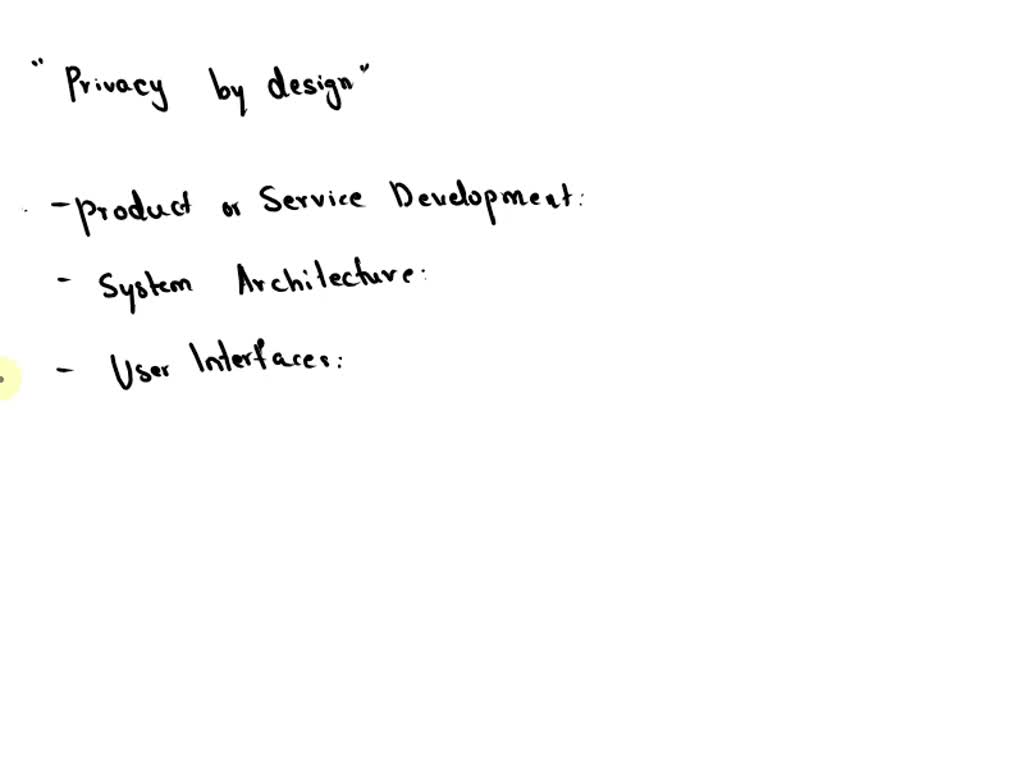 "Privacy by design"
- Product or Service Development:
- System Architecture:
- User Interfaces: